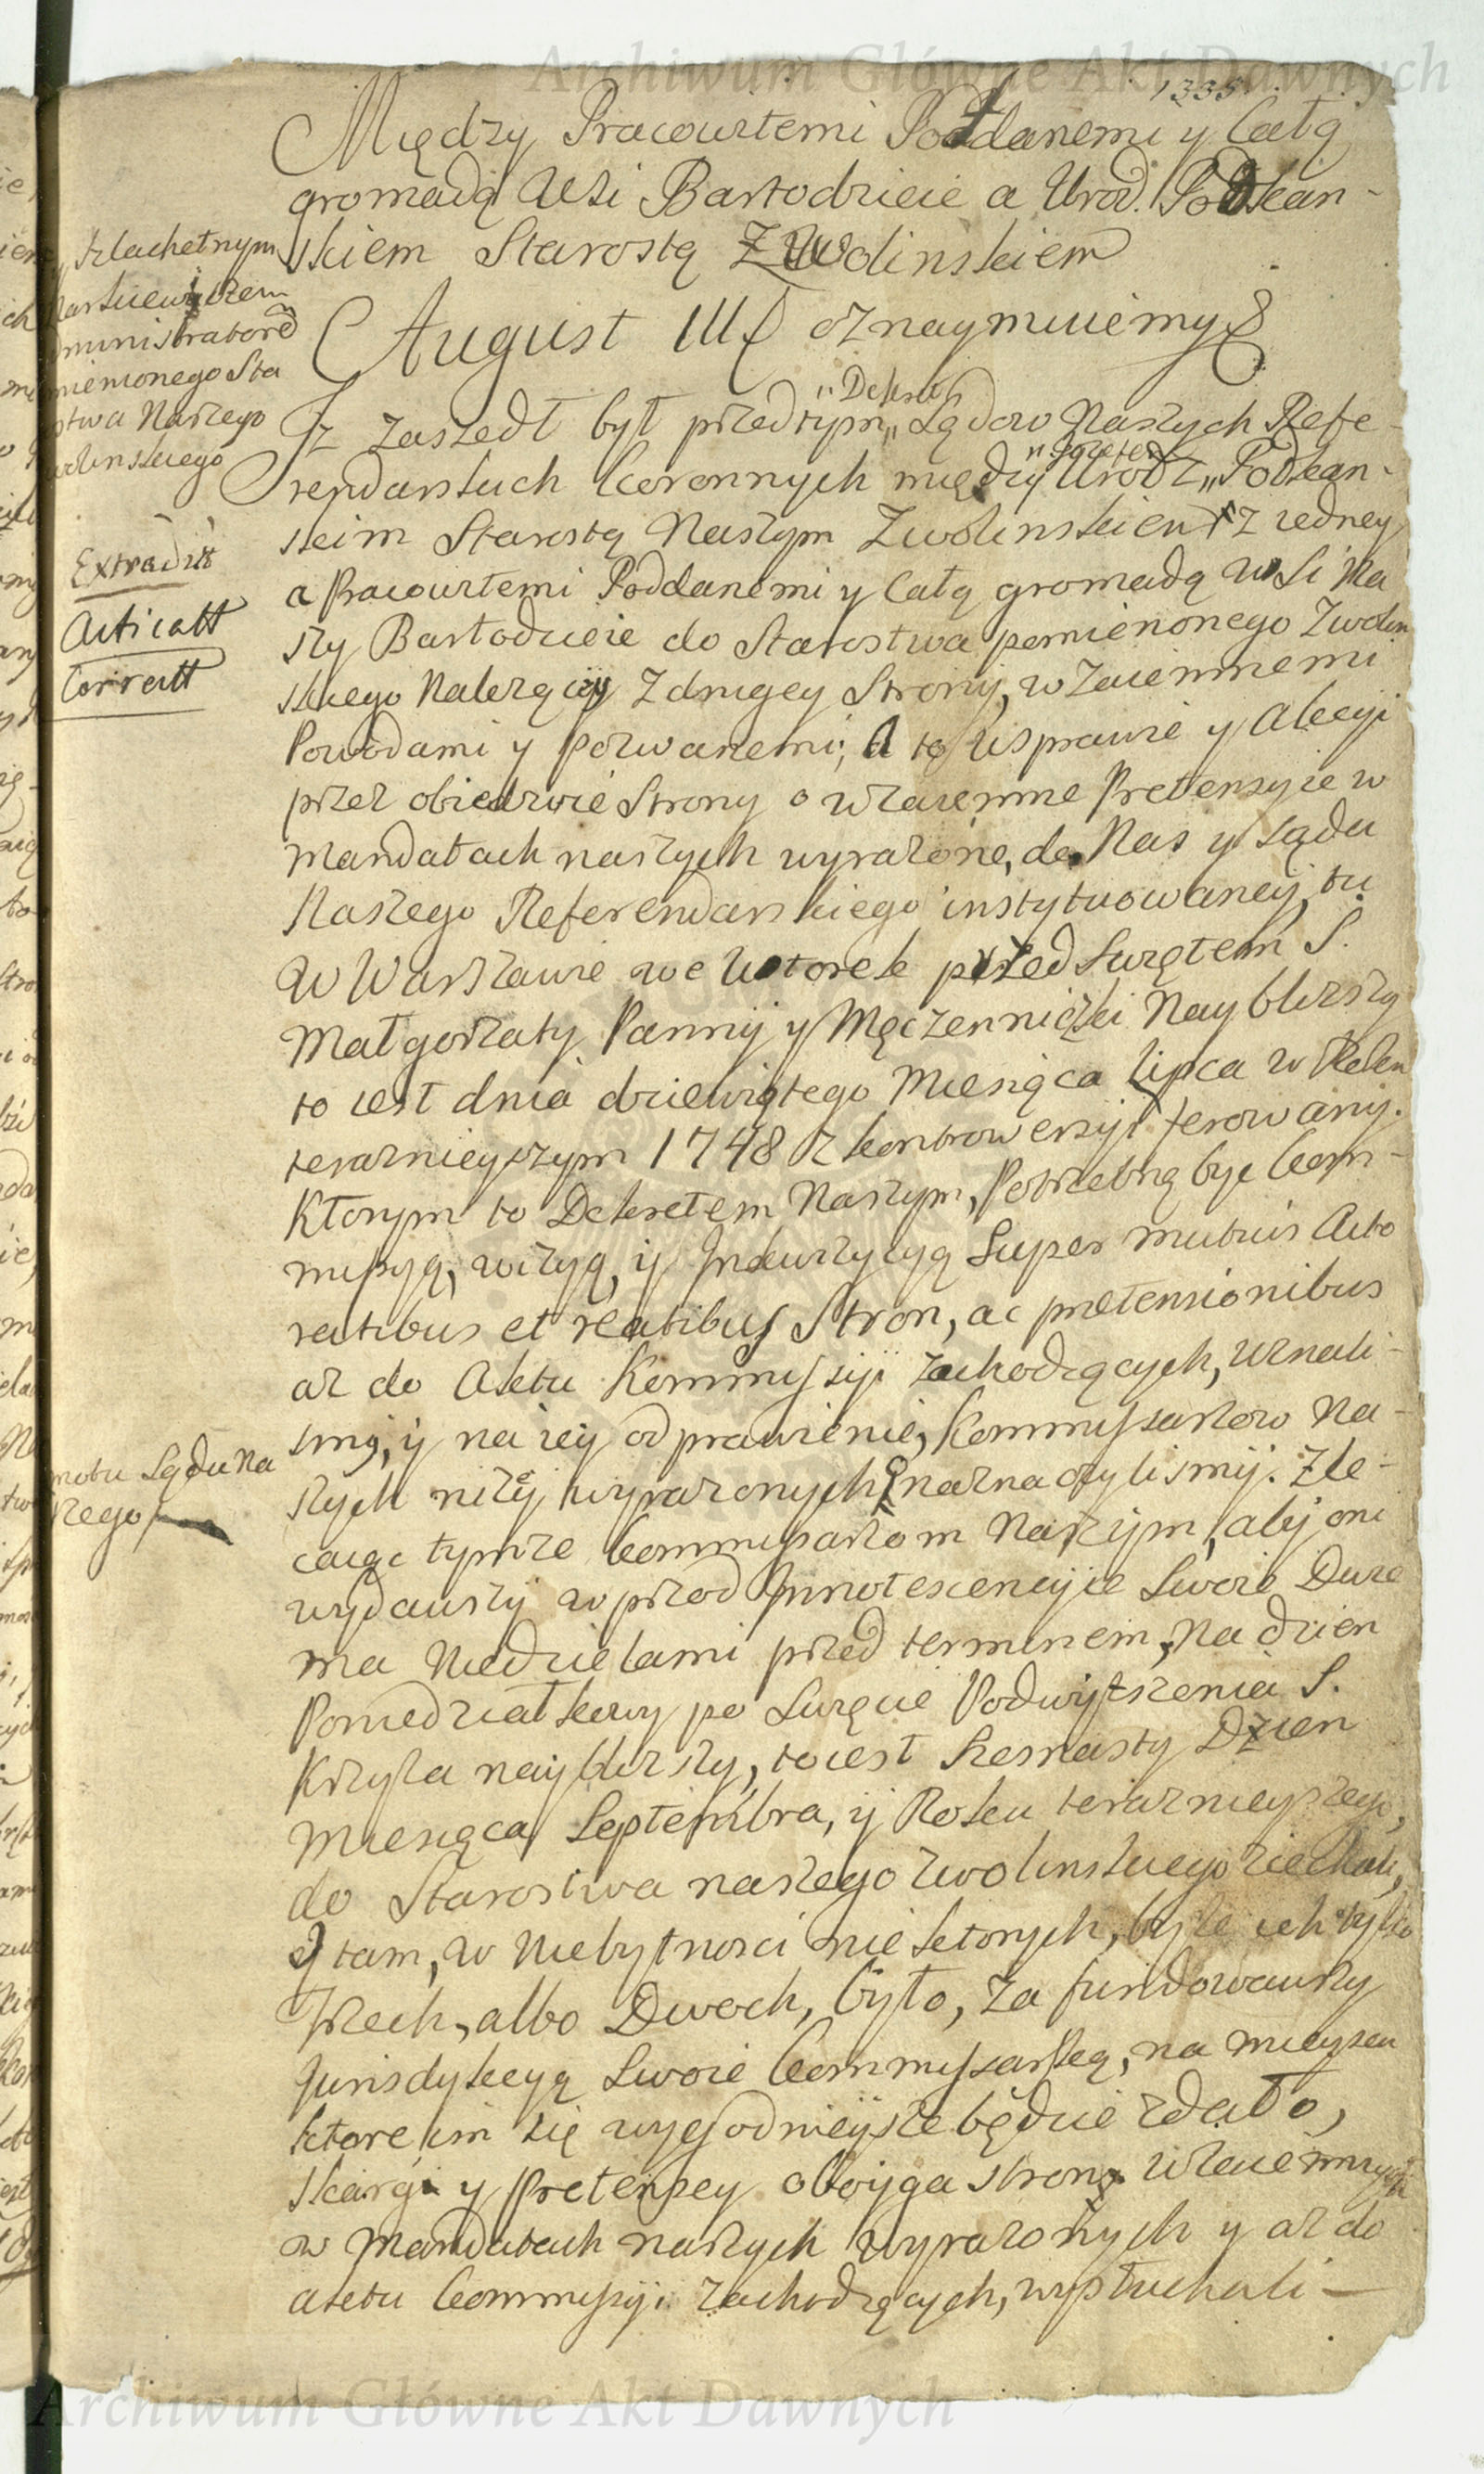 Archiwum Główne Akt Dawnych
1335
Między Pracowitemi Poddanemi y całą
gromadą Wsi Bartodzieie a Urod. Podkan-
skiem Starostą Zwolinskiem
August III oznaymuiemy
Iż zaszedł był przed tym „ Sądow Naszych Refe-
„Dekret
rendarskich koronnych między Urodz „ Podkan-
skim Starostą Naszym Zwolinskiem z iedney
a Pracowitemi Poddanemi y całą gromadą wsi Na
szy Bartodzieie do Starostwa pomienionego Zwolin
skiego Należący z drugey Strony, wzaiemnemi
Powodami y pozwanemi; A to wsprawie y akcyi
przez obiedwie Strony o wzaiemne Pretensyie w
mandatach naszych wyrażone, do Nas y sądu
Naszego Referendarskiego instytuowaney, tu
w Warszawie we Wtorek przed Swiętem S.
Małgorzaty Panny y Męczenniczki Nayblizszy
to iest dnia dziewiątego Miesiąca Lipca w Roku
teraznieyszym 1748 z kontrowersyi ferowany.
Ktorym to Dekretem Naszym, Potrzebną być kom-
missyą, wizyą, y Inkwizycyą super mutuis Acto
ratibus et reatibus Stron, ac pretensionibus
aż do Aktu Kommissyi zachodzących, uznali-
smy, y na iey odprawienie, Kommissarzow Na-
szych niżey wyrażonych naznaczylismy. Zle-
caiąc tymże kommissarzom Naszym, aby oni
wydawszy wprzod Innotescencyie Swoie Dwie
ma Niedzielami przed terminem, Na dzien
Poniedziałkowy po Swięcie Podwyższenia S.
Krzyża nayblizszy, to iest Szesnasty Dzien
Miesiąca Septembra, y Roku teraznieyszego,
do Starostwa naszego Zwolinskiego ziechali,
y tam, w Niebytnosci nie ktorych, byle ich tylko
Trzech, albo Dwoch, było, zafundowawszy
Jurisdykcyą Swoie kommissarską, na mieyscu
ktore im się wygodnieysze będzie zdało,
skargi y pretensyey oboyga strony wzaiemnych
w mandatach naszych wyrażonych y aż do
aktu kommissyi zachodzących, wysłuchali—
szlachetnym
ministratore
mienionego Sta
stwa Naszego
wolinskiego
Extradit
Acticatt
Correctt
mentu Sądu Na
szego
Archiwum Główne Akt Dawnych